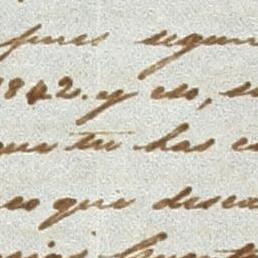 pues segun
1842. y eso, s
que tu has e
eo que desea